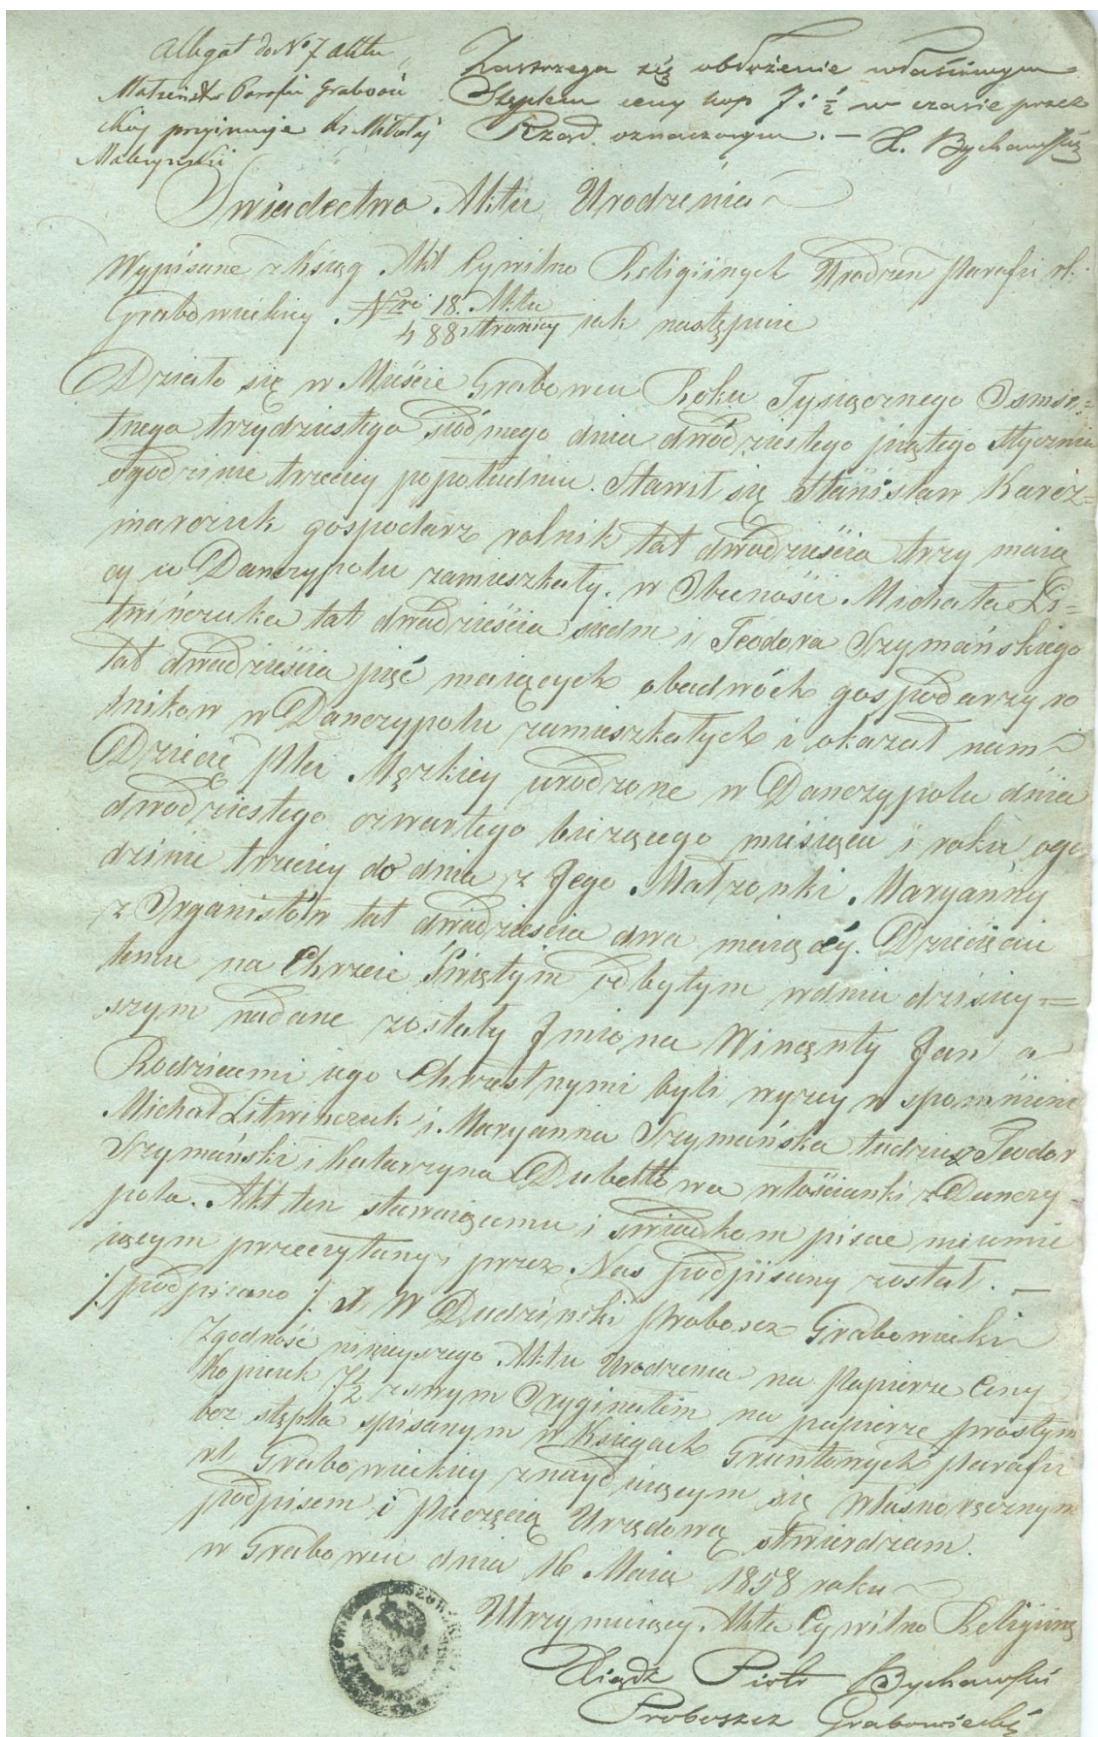 Allegat do No 7 Aktu
Małżeństw Parafii Grabowi
ckiej przyimuje Ks Mikołaj
Zastrzega się obłożenie właściwym
Stęplem ceny kop 7 i ½ w czasie przez
Rząd oznaczonym. — X. Bychawski
Swiadectwo Aktu Urodzenia
Wypisane z Ksiąg Akt Cywilno Religiinych Urodzeń Parafii rł.
Grabowieckiey Nro 18. Aktu
4 88 stronicy jak następuie
Działo się w Mieście Grabowcu Roku Tysiącznego Osmse-
tnego trzydziestego siódmego dnia dwódziestego piątego Stycznia
o godzinie trzeciey popołudniu. Stawił się Stanisław Karcz=
marczuk gospodarz rolnik lat dwadzieścia trzy maią
cy w Danczypolu zamieszkały. w Obecności Michała Li=
twińczuka lat dwadzieścia siedm i Teodora Szymańskiego
lat dwadzieścia pięć maiących obudwóch gospodarzy ro
lnikow w Danczypolu zamieszkałych i okazał nam
Dziecie Płci Męzkiey urodzone w Danczypolu dnia
dwodziestego czwartego bieżącego miesiąca i roku o go
dzinie trzeciey do dnia z Jego Małżonki Maryanny
z Organistów lat dwadzieścia dwa maiącéy. Dziecięciu
temu na Chrzcie Świętym odbytym w dniu dzisiey=
szym nadane zostały Jmiona Wincenty Jan a
Rodzicami iego Chrzestnymi byli wyżey wspomnieni
Michał Litwińczuk i Maryanna Szymańska tudzież Teodor
Szymański i Katarzyna Dubeltowa włościanki z Danczy
pola. Akt ten stawaiącemu i świadkom pisać nieumie
iącym przeczytany, przez Nas podpisany został. —
/: podpisano :/ X W Dudziński Proboscz Grabowiecki
Zgodność ninieyszego Aktu Urodzenia na Papierze Ceny
Kopieiek 7½ z swym Oryginałem na papierze prostym
bez stępla spisanym w Księgach Gruntownych Parafii
rł Grabowieckiey znayduiącym się własnoręcznym
podpisem i Pieczęcią Urzędową stwierdzam.
w Grabowcu dnia 16 Maia 1858 roku
Utrzymuiący Akta Cywilno Religiine
Xiądz Piotr Bychawski
Proboszcz Grabowiecki